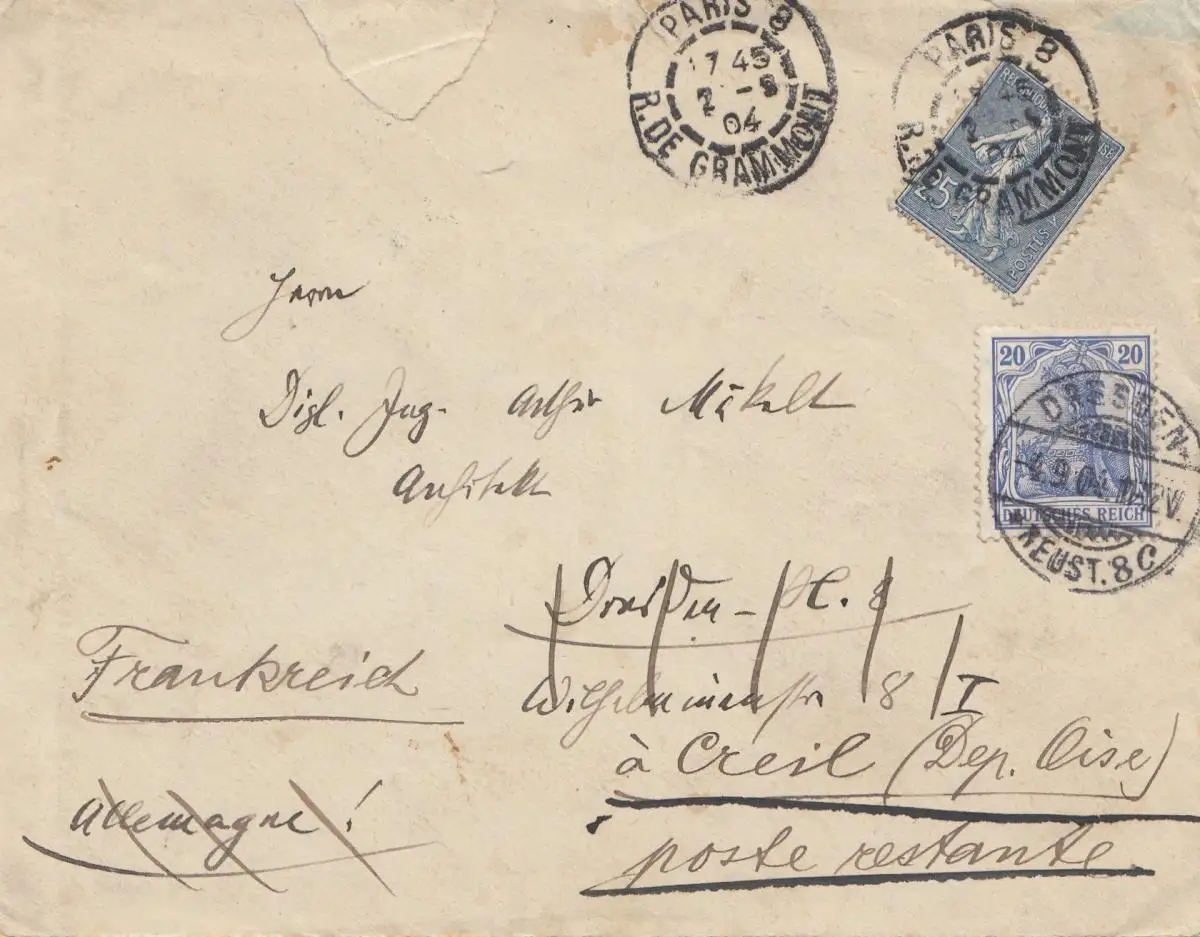 PARIS 8
17 45
2 - 9
04
R. DE GRAMMONT
PARIS 8
2
04
R. DE GRAMMONT
25
POSTES
20 20
DEUTSCHES REICH
DRESDEN-
4.9.04. 11-12V
NEUST. 8 C
Herrn
Dipl. Ing. Arthur
Architekt
Dresden - N. 8
Wilhelminenstr 8 I
Frankreich
à Creil (Dep. Oise)
Allemagne!
poste restante